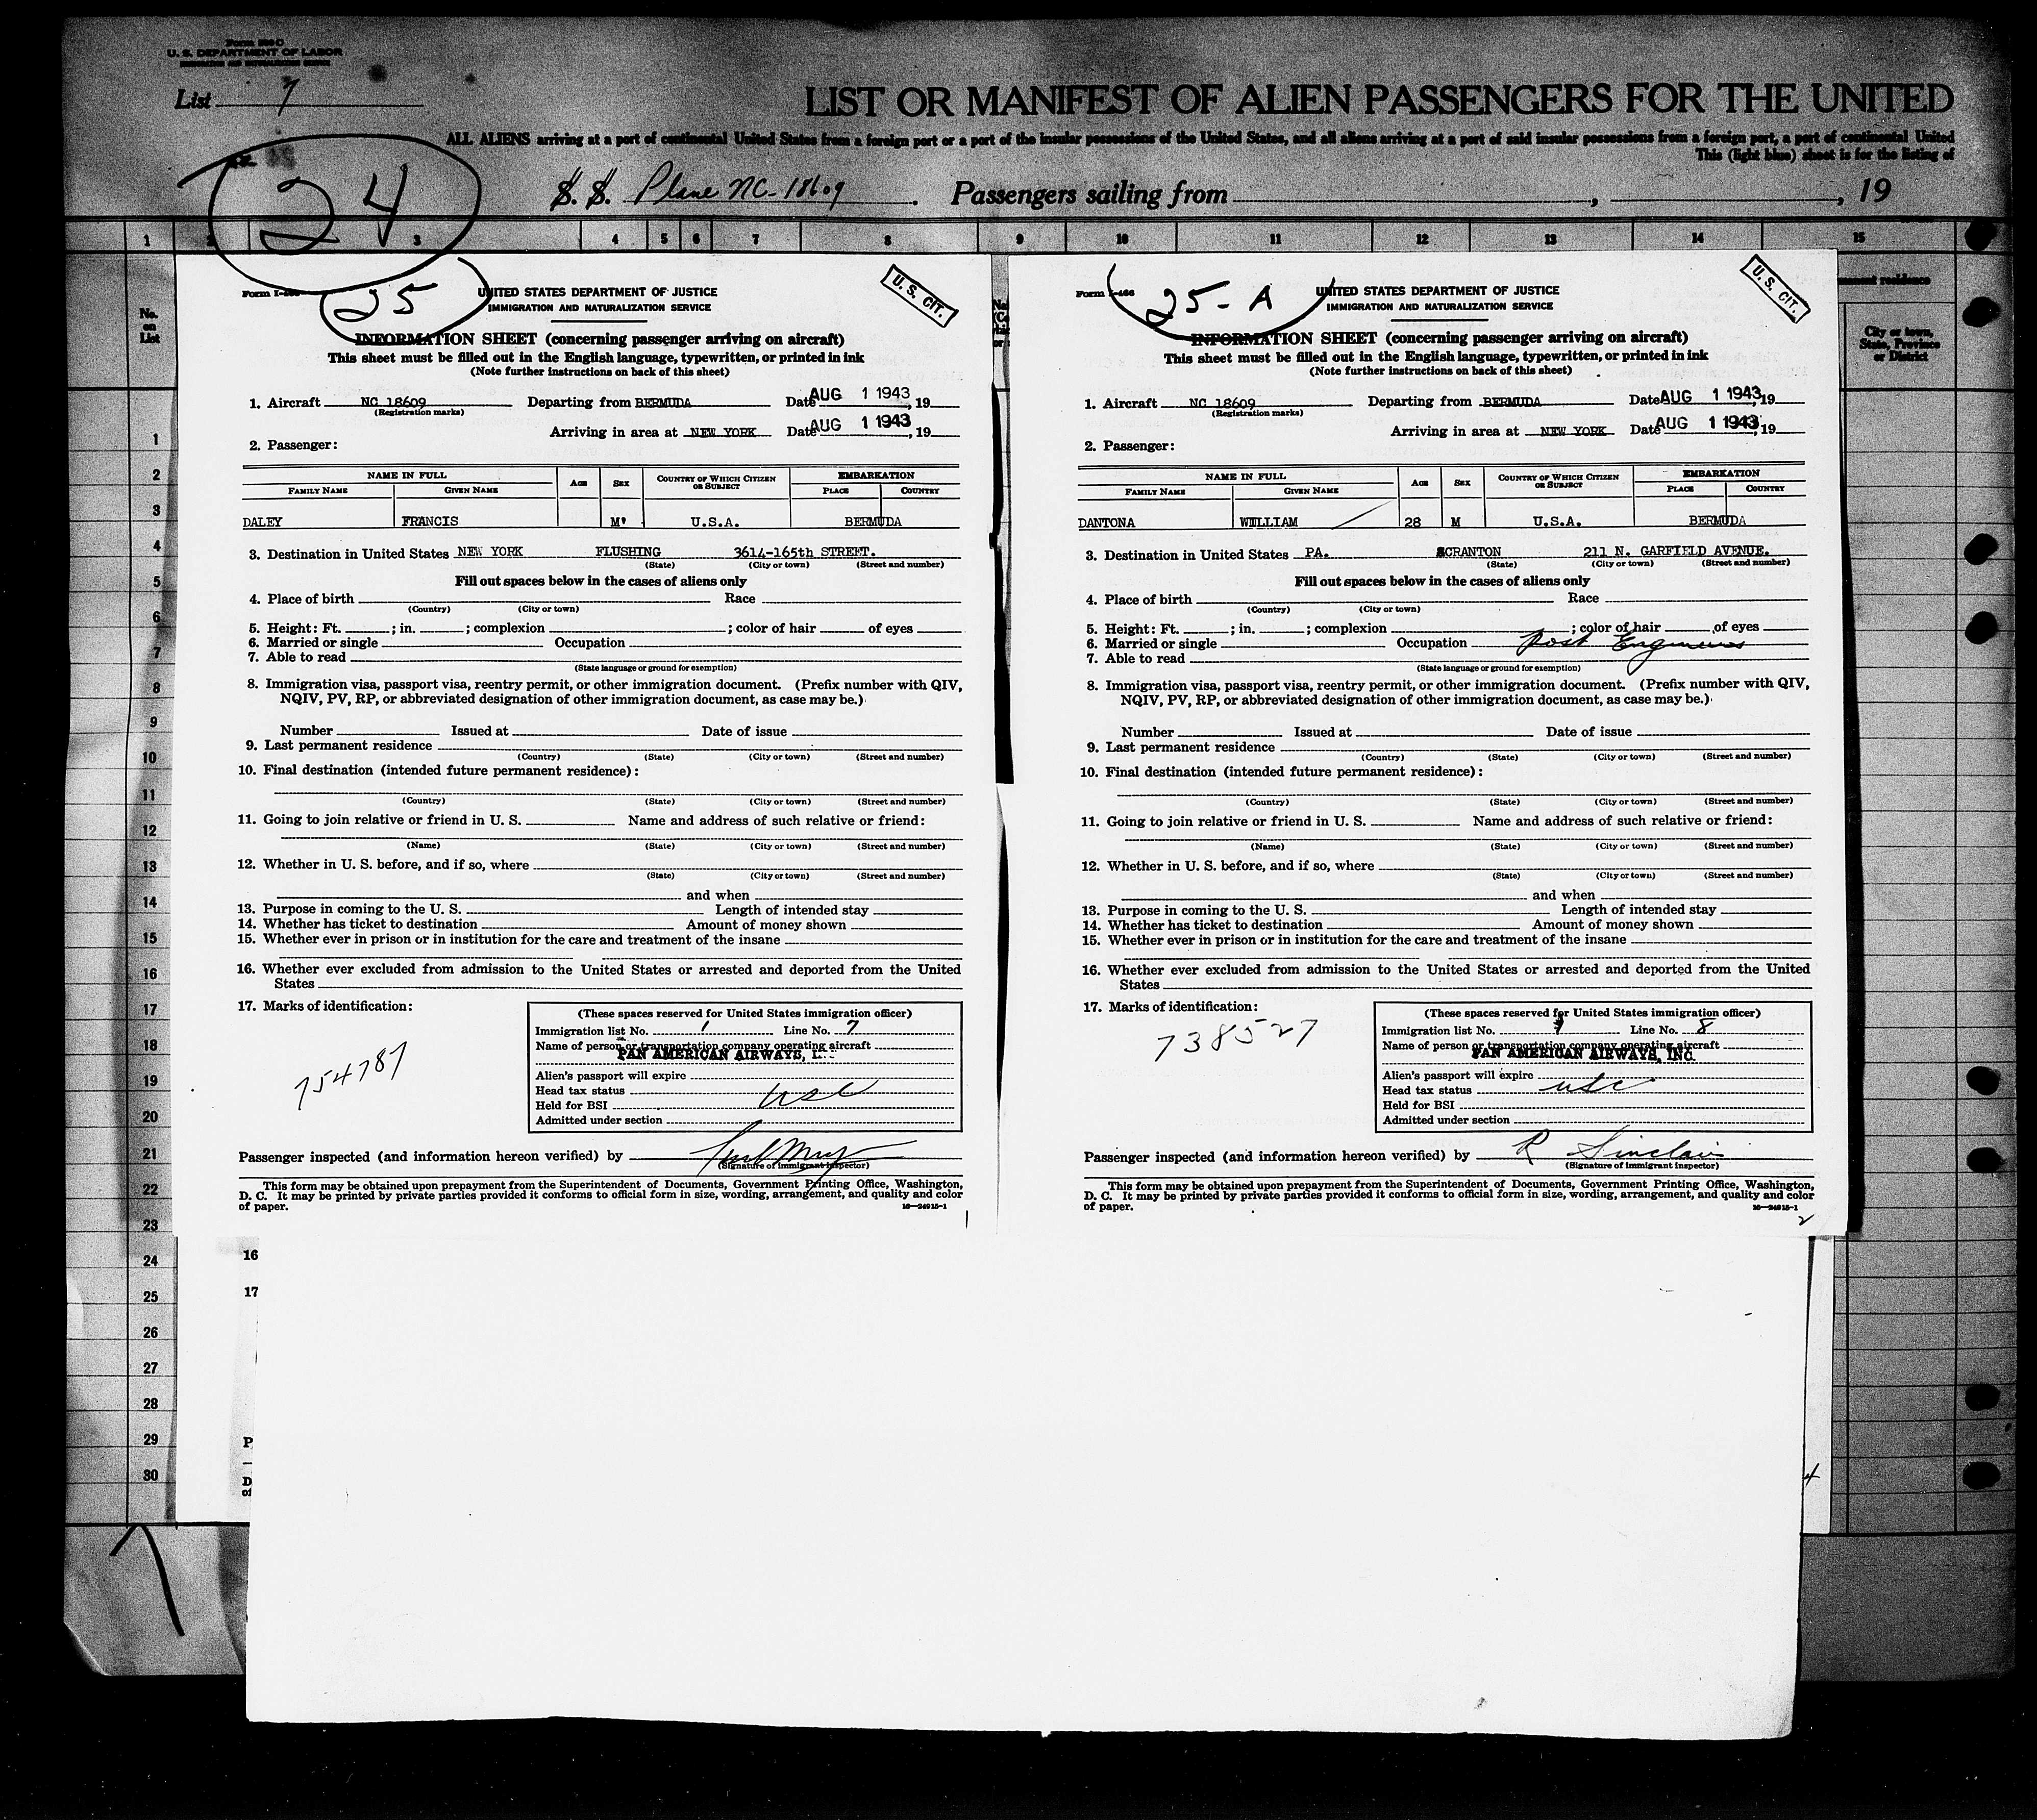 Form 500 C
U. S. DEPARTMENT OF LABOR
IMMIGRATION AND NATURALIZATION SERVICE
List 7
LIST OR MANIFEST OF ALIEN PASSENGERS FOR THE UNITED
ALL ALIENS arriving at a port of continental United States from a foreign port or a port of the insular possessions of the United States, and all aliens arriving at a port of said insular possessions from a foreign port, a port of continental United
This (light blue) sheet is for the listing of
24
S. S. Plane NC-18609. Passengers sailing from , , 19
1 2 3 4 5 6 7 8 9 10 11 12 13 14 15
No. on List
permanent residence
City or town, State, Province or District
1
2
3
4
5
6
7
8
9
10
11
12
13
14
15
16
17
18
19
20
21
22
23
24
25
26
27
28
29
30
25
U. S. CIT.
UNITED STATES DEPARTMENT OF JUSTICE
IMMIGRATION AND NATURALIZATION SERVICE
INFORMATION SHEET (concerning passenger arriving on aircraft)
This sheet must be filled out in the English language, typewritten, or printed in ink
(Note further instructions on back of this sheet)
1. Aircraft NC 18609 Departing from BERMUDA Date AUG 1 1943, 19
(Registration marks)
Arriving in area at NEW YORK Date AUG 1 1943, 19
2. Passenger:
NAME IN FULL Age Sex Country of Which Citizen or Subject EMBARKATION
Family Name Given Name Place Country
DALEY FRANCIS M U.S.A. BERMUDA
3. Destination in United States NEW YORK FLUSHING 3614-165th STREET.
(State) (City or town) (Street and number)
Fill out spaces below in the cases of aliens only
4. Place of birth Race
(Country) (City or town)
5. Height: Ft. ; in. ; complexion ; color of hair of eyes
6. Married or single Occupation
7. Able to read
(State language or ground for exemption)
8. Immigration visa, passport visa, reentry permit, or other immigration document. (Prefix number with QIV,
NQIV, PV, RP, or abbreviated designation of other immigration document, as case may be.)
Number Issued at Date of issue
9. Last permanent residence
(Country) (State) (City or town) (Street and number)
10. Final destination (intended future permanent residence):
(Country) (State) (City or town) (Street and number)
11. Going to join relative or friend in U. S. Name and address of such relative or friend:
(Name) (State) (City or town) (Street and number)
12. Whether in U. S. before, and if so, where
(State) (City or town) (Street and number)
and when
13. Purpose in coming to the U. S. Length of intended stay
14. Whether has ticket to destination Amount of money shown
15. Whether ever in prison or in institution for the care and treatment of the insane
16. Whether ever excluded from admission to the United States or arrested and deported from the United
States
17. Marks of identification:
754787
(These spaces reserved for United States immigration officer)
Immigration list No. 1 Line No. 7
Name of person or transportation company operating aircraft
PAN AMERICAN AIRWAYS,
Alien's passport will expire
Head tax status usc
Held for BSI
Admitted under section
Passenger inspected (and information hereon verified) by
(Signature of immigrant inspector)
This form may be obtained upon prepayment from the Superintendent of Documents, Government Printing Office, Washington,
D. C. It may be printed by private parties provided it conforms to official form in size, wording, arrangement, and quality and color
of paper.
16—24915-1
1
25-A
U. S. CIT.
UNITED STATES DEPARTMENT OF JUSTICE
IMMIGRATION AND NATURALIZATION SERVICE
INFORMATION SHEET (concerning passenger arriving on aircraft)
This sheet must be filled out in the English language, typewritten, or printed in ink
(Note further instructions on back of this sheet)
1. Aircraft NC 18609 Departing from BERMUDA Date AUG 1 1943, 19
(Registration marks)
Arriving in area at NEW YORK Date AUG 1 1943, 19
2. Passenger:
NAME IN FULL Age Sex Country of Which Citizen or Subject EMBARKATION
Family Name Given Name Place Country
DANTONA WILLIAM 28 M U.S.A. BERMUDA
3. Destination in United States PA. SCRANTON 211 N. GARFIELD AVENUE.
(State) (City or town) (Street and number)
Fill out spaces below in the cases of aliens only
4. Place of birth Race
(Country) (City or town)
5. Height: Ft. ; in. ; complexion ; color of hair of eyes
6. Married or single Occupation Post Engineers
7. Able to read
(State language or ground for exemption)
8. Immigration visa, passport visa, reentry permit, or other immigration document. (Prefix number with QIV,
NQIV, PV, RP, or abbreviated designation of other immigration document, as case may be.)
Number Issued at Date of issue
9. Last permanent residence
(Country) (State) (City or town) (Street and number)
10. Final destination (intended future permanent residence):
(Country) (State) (City or town) (Street and number)
11. Going to join relative or friend in U. S. Name and address of such relative or friend:
(Name) (State) (City or town) (Street and number)
12. Whether in U. S. before, and if so, where
(State) (City or town) (Street and number)
and when
13. Purpose in coming to the U. S. Length of intended stay
14. Whether has ticket to destination Amount of money shown
15. Whether ever in prison or in institution for the care and treatment of the insane
16. Whether ever excluded from admission to the United States or arrested and deported from the United
States
17. Marks of identification:
738527
(These spaces reserved for United States immigration officer)
Immigration list No. Line No. 8
Name of person or transportation company operating aircraft
PAN AMERICAN AIRWAYS, INC.
Alien's passport will expire
Head tax status usc
Held for BSI
Admitted under section
Passenger inspected (and information hereon verified) by R Sinclair
(Signature of immigrant inspector)
This form may be obtained upon prepayment from the Superintendent of Documents, Government Printing Office, Washington,
D. C. It may be printed by private parties provided it conforms to official form in size, wording, arrangement, and quality and color
of paper.
16—24915-1
2
16
17
P
D
of
4